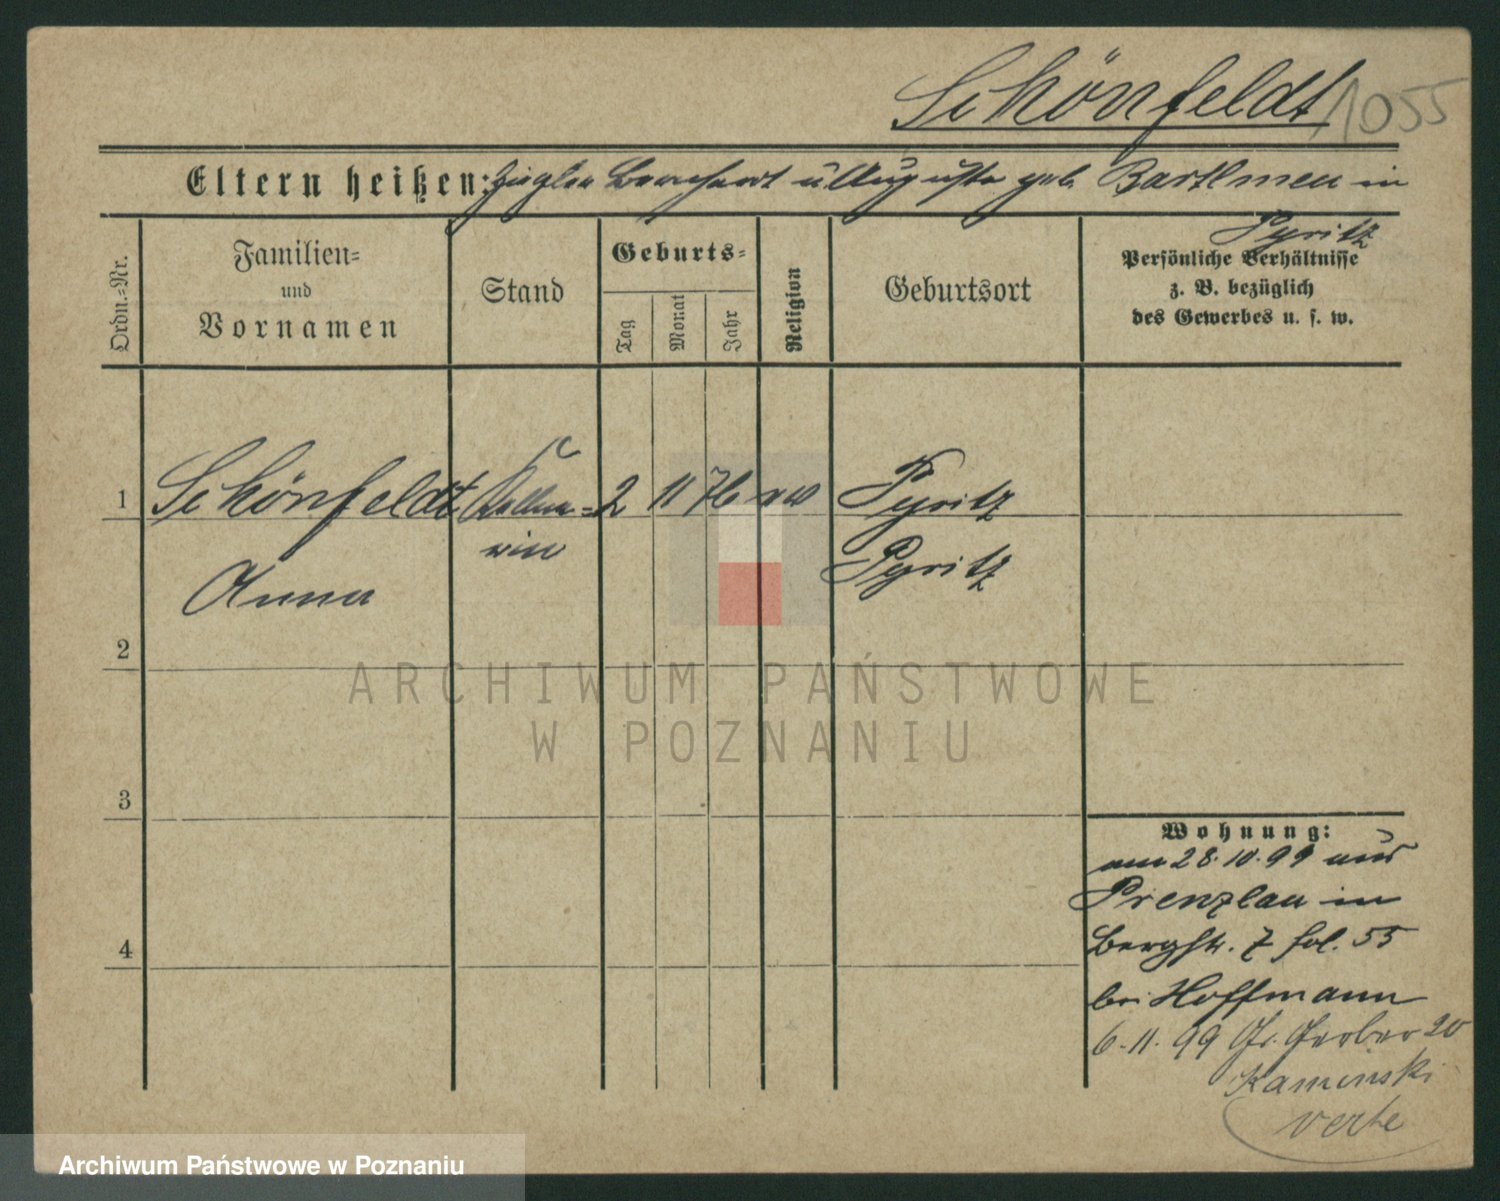 Schönfeldt 1055
Eltern heißen: Ziegler Borchert u Auguste geb. Bartlmen in
Pyritz
Ordn.-Nr.
Familien-
und
Vornamen
Stand
Geburts-
Tag
Monat
Jahr
Religion
Geburtsort
Persönliche Verhältnisse
z. B. bezüglich
des Gewerbes u. s. w.
1 Schönfeldt Kellne- 2 11 76 ev Pyritz
rin Pyritz
Anna
2
3
4
Wohnung:
am 28.10.99 aus
Prenzlau in
Bergstr. 7 fol. 55
bei Hoffmann
6.11.99 Gr. Gerber 20
Kaminski
verte
ARCHIWUM PAŃSTWOWE
W POZNANIU
Archiwum Państwowe w Poznaniu